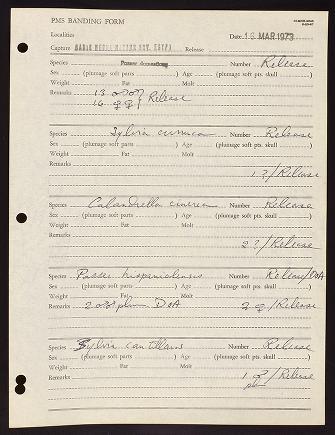 PMS BANDING FORM
Localities
Date 16 MAR 1973
Capture Release
Species Passer domesticus Number Release
Sex (plumage soft parts ) Age (plumage soft pts. skull )
Weight Fat Molt
Remarks 13 ♂♂
16 ♀♀ } Release
Species Sylvia curruca Number Release
Sex (plumage soft parts ) Age (plumage soft pts. skull )
Weight Fat Molt
Remarks
1 ?/Release
Species Calandrella cinerea Number Release
Sex (plumage soft parts ) Age (plumage soft pts. skull )
Weight Fat Molt
Remarks
2 ?/Release
Species Passer hispaniolensis Number Release/DOA
Sex (plumage soft parts ) Age (plumage soft pts. skull )
Weight Fat Molt
Remarks 2 DOA 2 ♀/Release
Species Sylvia cantillans Number Release
Sex (plumage soft parts ) Age (plumage soft pts. skull )
Weight Fat Molt
Remarks 1 /Release